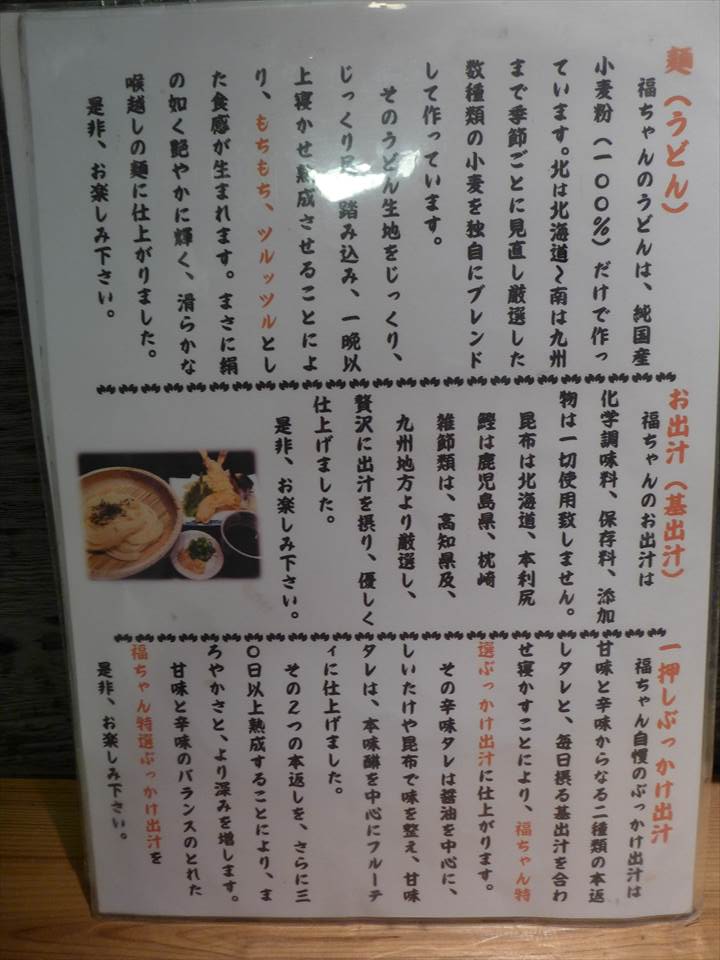 麺（うどん）
福ちゃんのうどんは、純国産
小麦粉（一００％）だけで作っ
ています。北は北海道～南は九州
まで季節ごとに見直し厳選した
数種類の小麦を独自にブレンド
して作っています。
そのうどん生地をじっくり、
じっくり足踏み込み、一晩以
上寝かせ熟成させることによ
り、もちもち、ツルッツルとし
た食感が生まれます。まさに絹
の如く艶やかに輝く、滑らかな
喉越しの麺に仕上がりました。
是非、お楽しみ下さい。
お出汁（基出汁）
福ちゃんのお出汁は
化学調味料、保存料、添加
物は一切使用致しません。
昆布は北海道、本利尻
鰹は鹿児島県、枕崎
雑節類は、高知県及、
九州地方より厳選し、
贅沢に出汁を摂り、優しく
仕上げました。
是非、お楽しみ下さい。
一押しぶっかけ出汁
福ちゃん自慢のぶっかけ出汁は
甘味と辛味からなる二種類の本返
しタレと、毎日摂る基出汁を合わ
せ寝かすことにより、福ちゃん特
選ぶっかけ出汁に仕上がります。
その辛味タレは醤油を中心に、
しいたけや昆布で味を整え、甘味
タレは、本味醂を中心にフルーテ
ィに仕上げました。
その２つの本返しを、さらに三
〇日以上熟成することにより、ま
ろやかさと、より深みを増します。
甘味と辛味のバランスのとれた
福ちゃん特選ぶっかけ出汁を
是非、お楽しみ下さい。